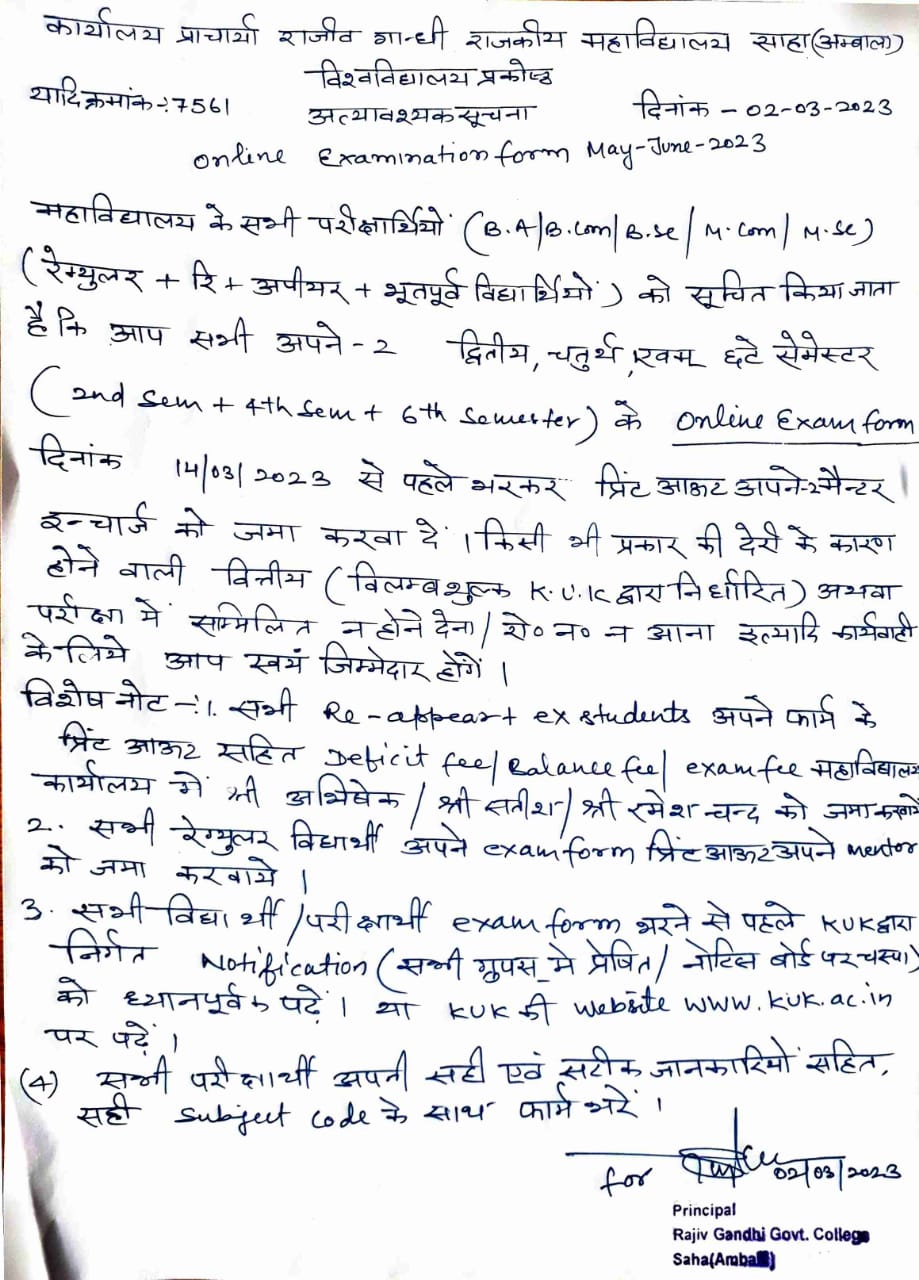 कार्यालय प्राचार्या राजीव गान्धी राजकीय महाविद्यालय साहा(अम्बाला)
विश्वविद्यालय प्रकोष्ठ
यादि क्रमांक-:7561 अत्यावश्यक सूचना दिनांक - 02-03-2023
Online Examination form May-June-2023
महाविद्यालय के सभी परीक्षार्थियों (B.A/B.Com/B.Sc/M.Com/M.Sc)
(रेग्युलर + रि + अपीयर + भूतपूर्व विद्यार्थियों) को सूचित किया जाता
है कि आप सभी अपने-2 द्वितीय, चतुर्थ, एवम् छटे सेमेस्टर
(2nd Sem + 4th Sem + 6th Semester) के Online Exam form
दिनांक 14/03/2023 से पहले भरकर प्रिंट आऊट अपने-2 मैन्टर
इन्चार्ज को जमा करवा दें । किसी भी प्रकार की देरी के कारण
होने वाली वित्तीय (विलम्ब शुल्क K.U.K द्वारा निर्धारित) अथवा
परीक्षा में सम्मिलित न होने देना / रो० न० न आना इत्यादि कार्यवाही
के लिये आप स्वयं जिम्मेदार होंगें ।
विशेष नोट -:1. सभी Re-appear + ex students अपने फार्म के
प्रिंट आऊट सहित Deficit fee/Balance fee/exam fee महाविद्यालय
कार्यालय में श्री अभिषेक / श्री सतीश / श्री रमेश चन्द को जमा करवायें
2. सभी रेग्युलर विद्यार्थी अपने exam form प्रिंट आऊट अपने mentor
को जमा करवाये ।
3. सभी विद्यार्थी / परीक्षार्थी exam form भरने से पहले KUK द्वारा
निर्गत Notification (सभी ग्रुपस में प्रेषित / नोटिस बोर्ड पर चस्पा)
को ध्यानपूर्वक पढ़ें । या KUK की website www.kuk.ac.in
पर पढ़ें ।
(4) सभी परीक्षार्थी अपनी सही एवं सटीक जानकारियों सहित,
सही Subject Code के साथ फार्म भरें ।
for 02/03/2023
Principal
Rajiv Gandhi Govt. College
Saha(Ambala)